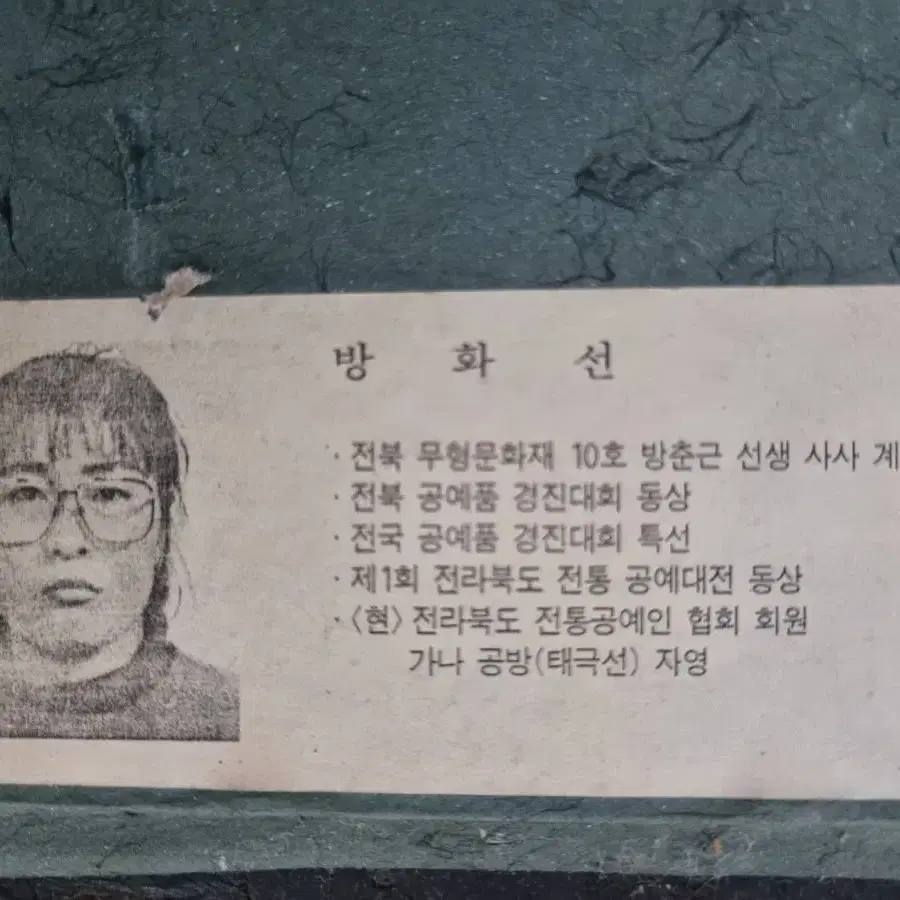 방 화 선
· 전북 무형문화재 10호 방춘근 선생 사사 계
· 전북 공예품 경진대회 동상
· 전국 공예품 경진대회 특선
· 제1회 전라북도 전통 공예대전 동상
· 〈현〉 전라북도 전통공예인 협회 회원
가나 공방(태극선) 자영